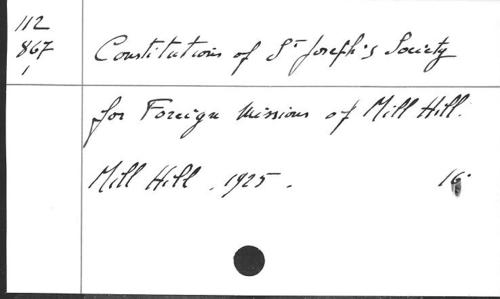 112
867
1
Constitutions of St Joseph's Society
for Foreign Missions of Mill Hill.
Mill Hill . 1925 . 16°